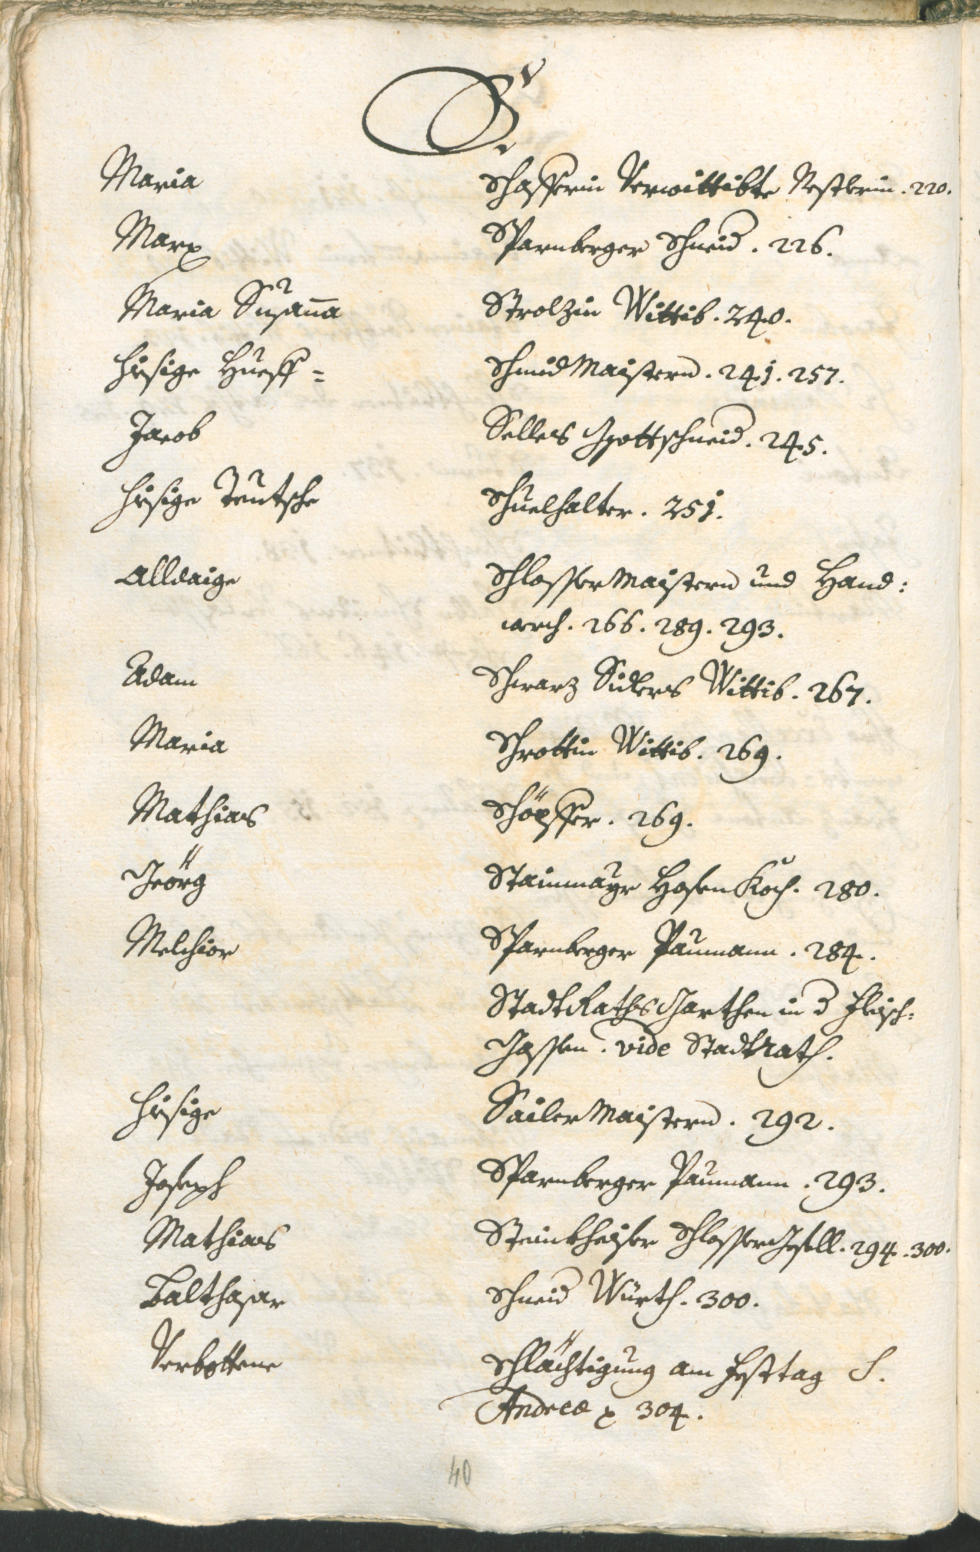 S.
Maria Schofferin Verwittibte Nestlerin. 220.
Marx Sparnberger Schneid. 226.
Maria Susanna Strolzin Wittib. 240.
hisige Hueff= SchmidMaistern. 241. 257.
Jacob Sellers Gottschneid. 245.
hisige Teutsche Schuelhalter. 251.
Alldaige SchlosserMaistern und Hand:
werch. 266. 289. 293.
Adam Schwarz Sidlers Wittib. 267.
Maria Schrottin Wittib. 269.
Mathias Schöpffer. 269.
Geörg Stainmayr HofenKoch. 280.
Melchior Sparnberger Paumann. 284.
StadtRathsGarthen in d Fleisch:
Gassen. vide StadtRath.
hisige SailerMaistern. 292.
Joseph Sparnberger Paumann. 293.
Mathias SchlosserGesell. 294. 300.
Balthasar Schneid Würth. 300.
Verbottene Schlächtigung am Festtag S.
Andreæ 304.
40